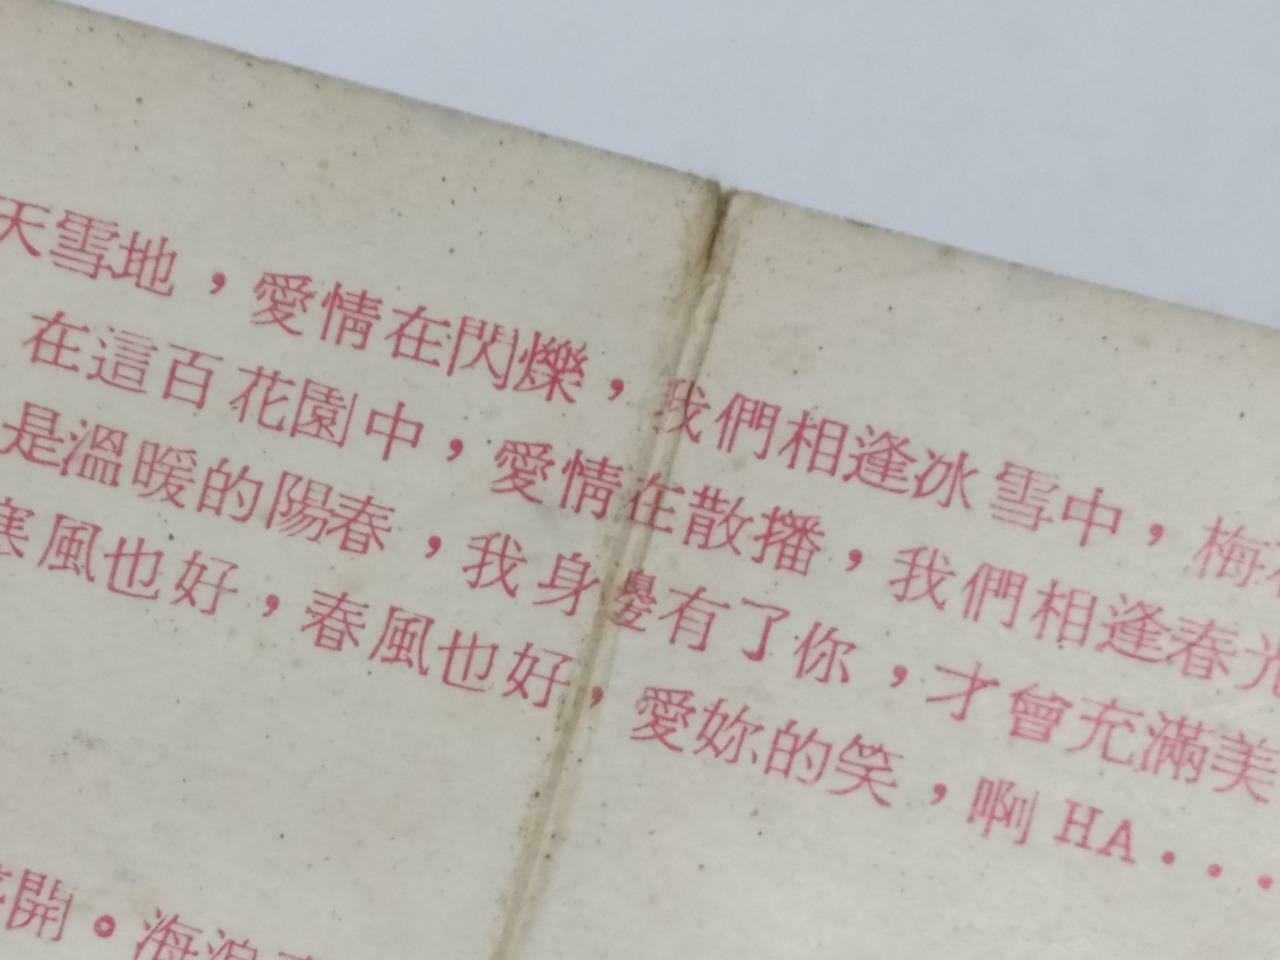 天雪地，愛情在閃爍，我們相逢冰雪中，梅
在這百花園中，愛情在散播，我們相逢春光
是溫暖的陽春，我身邊有了你，才會充滿美
寒風也好，春風也好，愛妳的笑，啊HA・・・
開。海浪